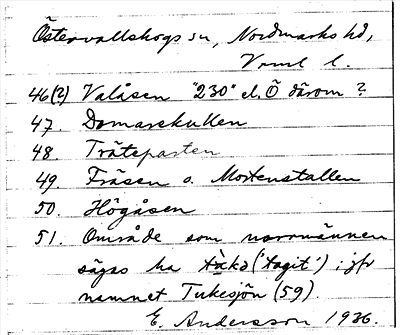 Östervallskogs sn, Nordmarks hd,
Vrml l.
46(?) Valåsen "230" el. Ö därom ?
47. Domarekullen
48. Träteparten
49. Fräsen o. Mortenstallen
50. Högåsen
51. Område som norrmännen
sägas ha tàkə ('tagit') ; jfr
namnet Tukesjön (59).
E. Andersson 1926.